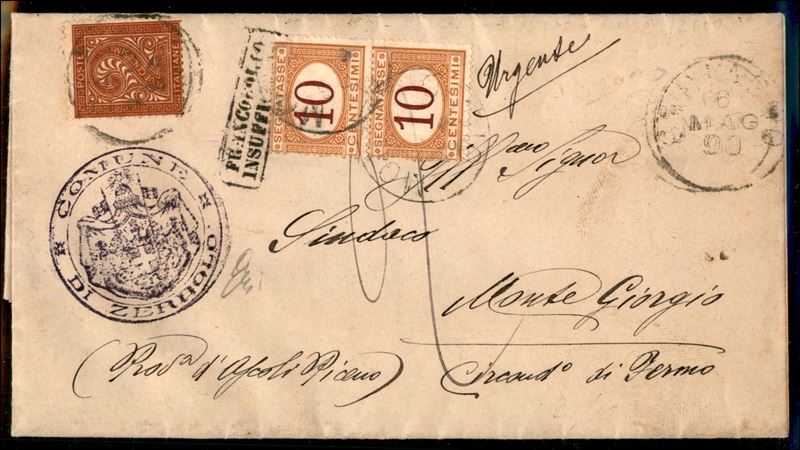 POSTE ITALIANE
FRANCOBOLLO
INSUFFI
SEGNATASSE 10 CENTESIMI
SEGNATASSE 10 CENTESIMI
Urgente
16
MAG
90
COMUNE DI ZERBOLO
Signor
Sindaco
Monte Giorgio
(Prov.a d'Ascoli Piceno)
Circond.o di Fermo